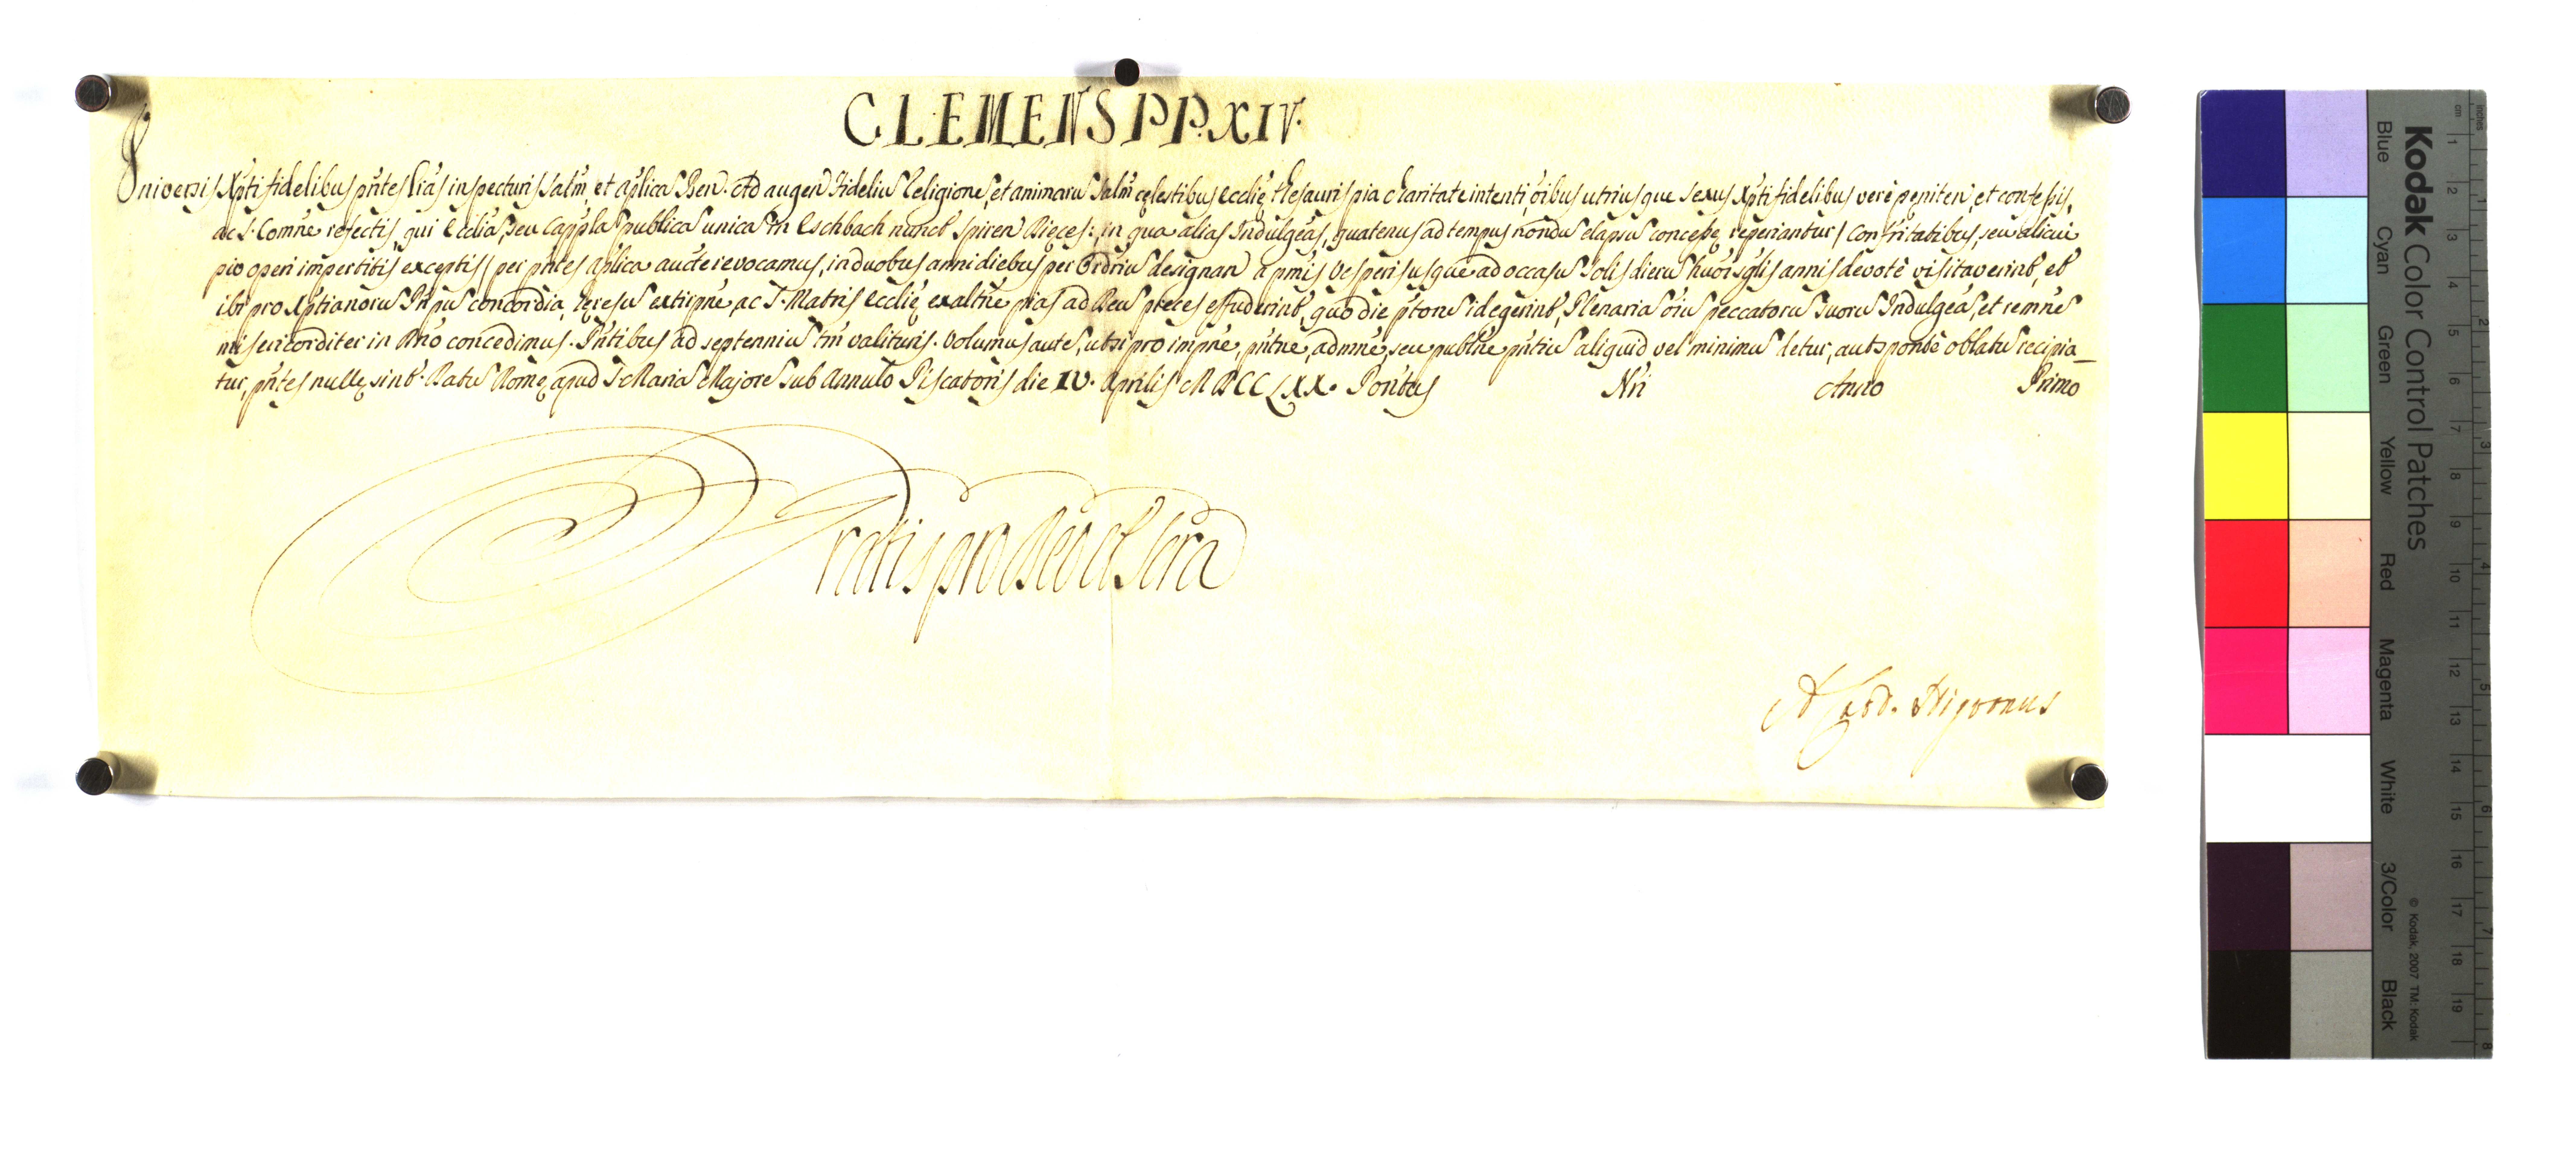 CLEMENS PP. XIV.
Universis Xpti fidelibus pñtes Lras inspecturis Salm, et aplicã Ben. Ad augend Fideliũ Religionẽ, et animarũ Salm cęlestibus Ecclię thesauris pia charitate intenti, oibus utriusque sexus Xpti fidelibus verè pęniten, et confessis,
ac S. Comñe refectis, qui Eccliã, seu Cappłã publicã unicã in Eschbach nunct Spiren Dięces: in qua alias Indulgeãs, quatenus ad tempus nondũ elapsũ concessę reperiantur, confritatibus, seu alicui
pio operi impertitis exceptis per pñtes aplicã aucte revocamus, in duobus anni diebus per Ordriũ designan à pmis Vesperis usque ad occasũ Solis dierũ huõi sglis annis devotè visitaverint, et
ibi pro Xptianorũ Pnpũ concordia, hęresũ extirpñe, ac S. Matris Ecclię exaltñe pias ad Deũ preces effuderint, quo die ptorũ id egerint, Plenariã oiũ peccatorũ suorũ Indulgeã, et remñe
misericorditer in Dño concedimus. Pñtibus ad septenniũ tm valituris. Volumus autẽ, ut si pro impñe, pñtñe, admñe, seu publñe pñtiũ aliquid vel minimũ detur, aut sponte oblatũ recipia_
tur, pñtes nullę sint. Datũ Romę apud S. Mariã Majorẽ sub Annulo Piscatoris die IV. Aprilis MDCCLXX. Pontus Nri Anno Primo
Gratis pro Deo et Scra
A. Card. Nigronus
Kodak Color Control Patches
Blue Cyan Green Yellow Red Magenta White 3/Color Black
© Kodak, 2007 TM: Kodak
cm 1 2 3 4 5 6 7 8 9 10 11 12 13 14 15 16 17 18 19
inches 1 2 3 4 5 6 7 8